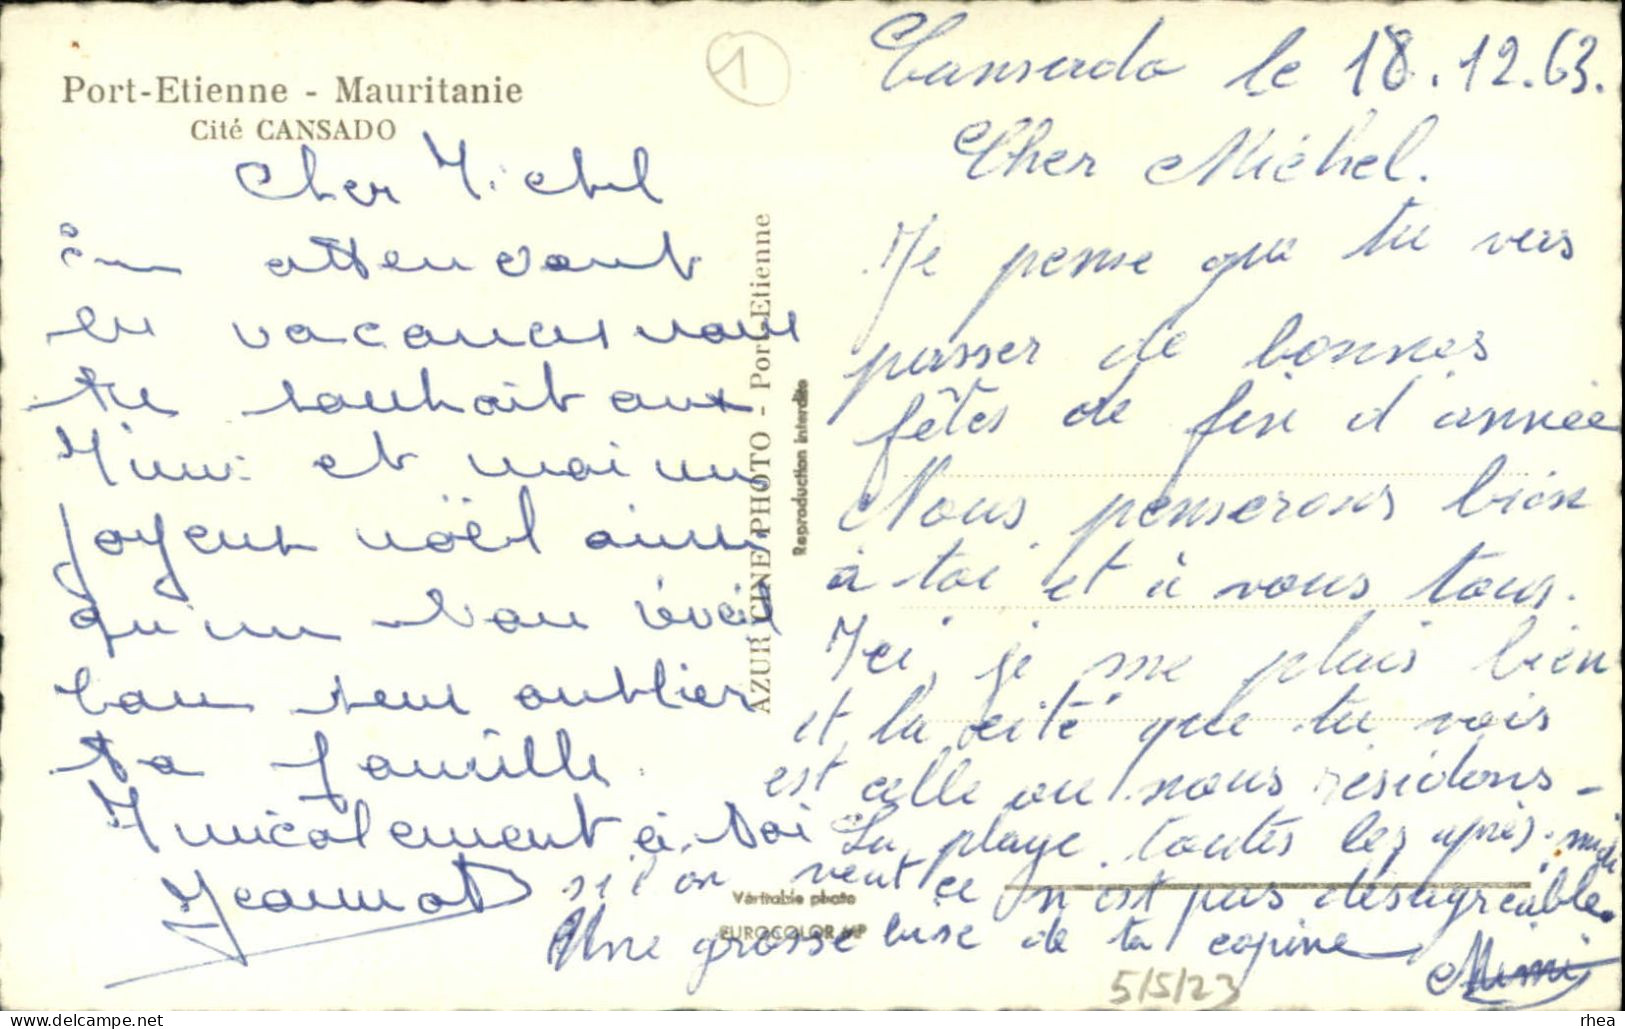 Port-Etienne - Mauritanie
Cité CANSADO
1
Cher Michel
En attendant
les vacances nous
te souhait aux
Mimi et moi un
joyeux noël ainsi
qu'un bon réveil
sans oublier
ta famille.
Amicalement à toi
Jeannot
AZUR CINE PHOTO - Port-Etienne
Reproduction interdite
Véritable photo
EUROCOLOR
Cansado le 18.12.63.
Cher Michel.
Je pense que tu vas
passer de bonnes
fêtes de fin d'année
Nous penserons bien
à toi et à vous tous.
Ici, je me plais bien
et la cité que tu vois
est celle ou nous résidons -
La plage toutes les après-midi
si l'on veut ce n'est pas désagréable.
Une grosse bise de ta copine
Mimi
5/5/23
rhea